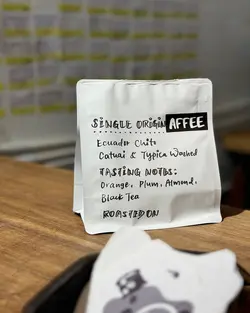 SINGLE ORIGIN AFFEE
Ecuador Chito
Catuai & Typica Washed
TASTING NOTES:
Orange, Plum, Almond,
Black Tea
ROASTED ON